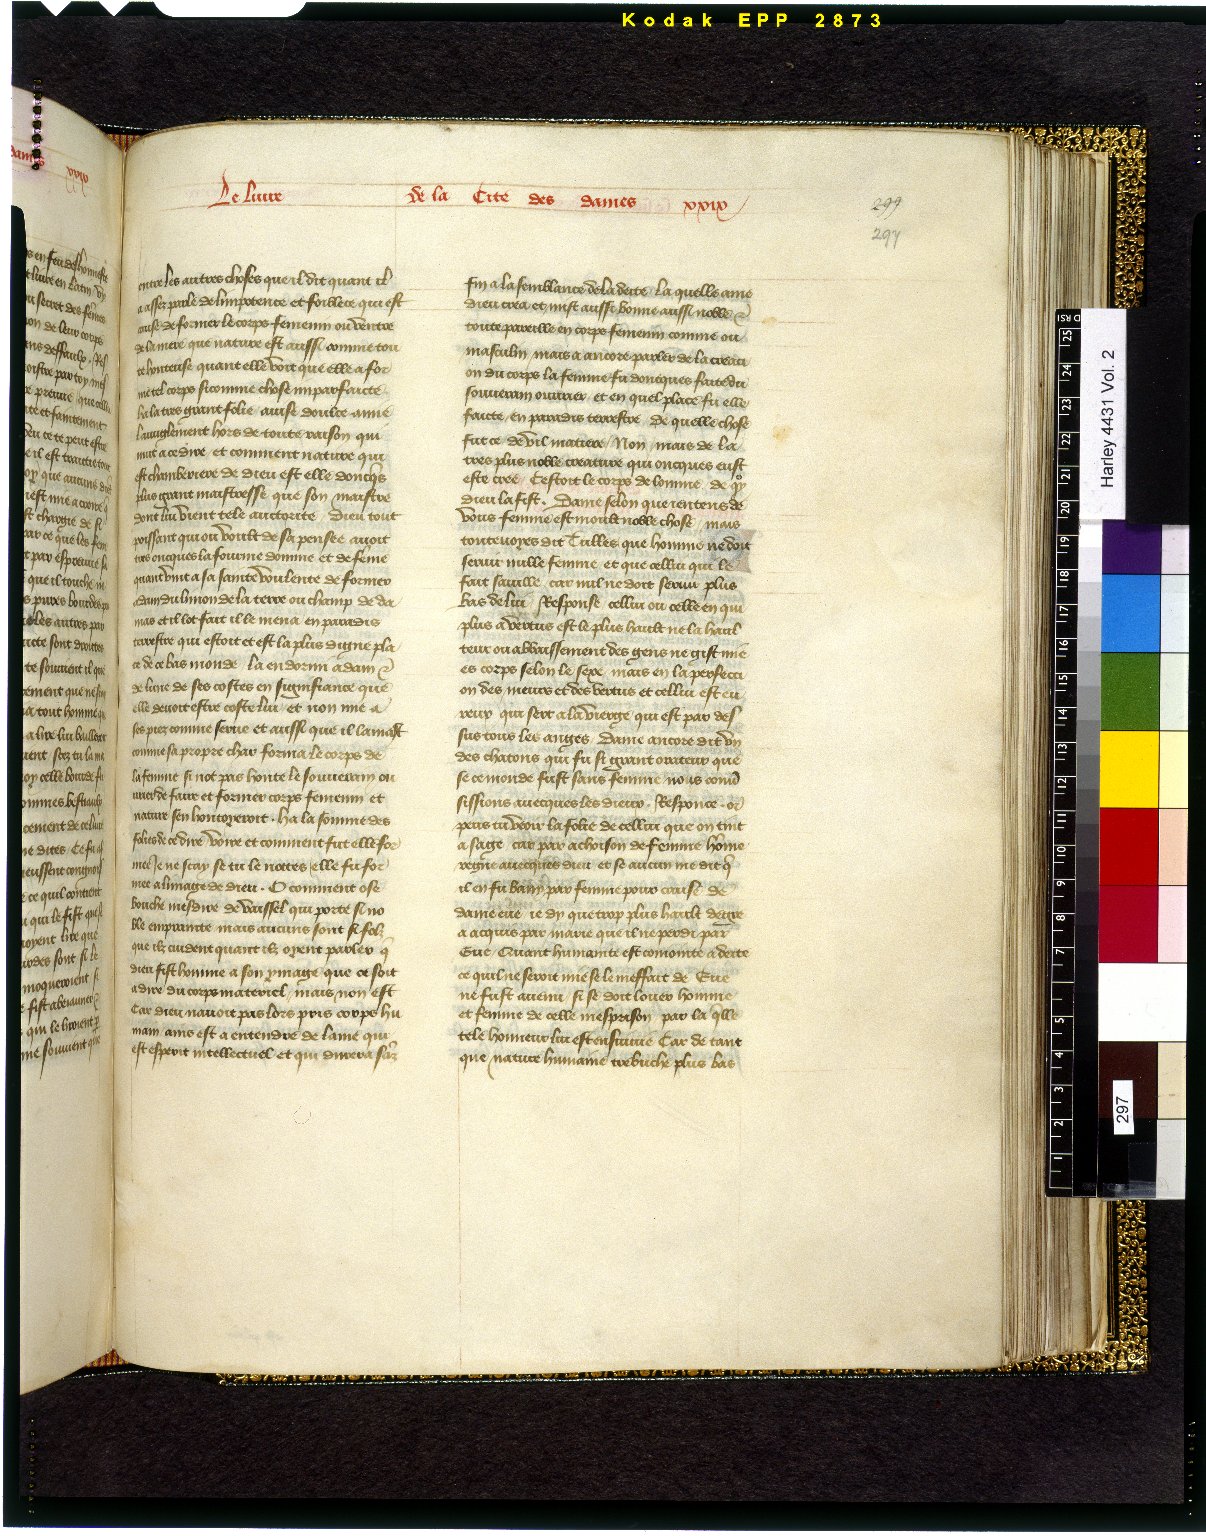 Kodak EPP 2873
Le livre de la Cite des dames xxix
299
297
entre les autres choses que il dit quant il
a assez parle de limpotence et foiblece qui est
cause de former le corps femenin ou ventre
de la mere que nature est aussi comme tou
te honteuse quant elle voit que elle a for
me tel corps si comme chose imparfaicte
ha la tres grant folie avise doulce amie
lavuglement hors de toute raison qui
mut a ce dire et comment nature qui
est chamberiere de dieu est elle doncq̄s
plus grant maistresse que son maistre
dont lui vient tele auctorite dieu tout
poissant qui ou voult de sa pensee avoit
tres oncques la fourme domme et de feme
quant vint a sa sainte voulente de former
adam du limon de la terre ou champ de da
mas et il lot fait il le mena en paradis
terrestre qui estoit et est la plus digne pla
ce de ce bas monde la endormi adam &
de lune de ses costes en signifiance que
elle devoit estre coste lui et non mie a
ses piez comme serve et aussi que il lamast
comme sa propre char forma le corps de
la femme si not pas honte le souverain ou
vrier de faire et former corps femenin et
nature sen hontoieroit . Ha la somme des
folies de ce dire voire et comment fut elle for
mee Je ne scay se tu le nottes elle fu for
mee a limage de dieu . O comment ose
bouche mesdire de vaissel qui porte si no
ble emprainte mais aucuns sont si folz
que ilz cuident quant ilz oyent parler q̄
dieu fist homme a son ymage que ce soit
a dire du corps materiel / mais non est
Car dieu navoit pas lors pris corps hu
main ains est a entendre de lame qui
est esperit intellectuel et qui durera sāz
fin a la semblance de la deite la quelle ame
dieu crea et mist aussi bonne aussi noble &
toute pareille en corps femenin comme ou
masculin mais a ancore parler de la creaci
on du corps la femme fu doncques faite du
souverain ouvrier et en quel place fu elle
faicte / en paradis terrestre de quelle chose
fut ce de vil matiere / Non mais de la
tres plus noble creature qui oncques eust
este cree Cestoit le corps de lomme de qȳ
dieu la fist . Dame selon que ientens de
vous femme est moult noble chose mais
toutevoyes dit Tulles que homme ne doit
servir nulle femme et que cellui qui le
fait saville car nul ne doit servir plus
bas de lui Response cellui ou celle en qui
plus a vertus est le plus hault ne la haul
teur ou abbaissement des gens ne gist mie
es corps selon le sexe mais en la perfecci
on des meurs et des vertus et cellui est eu
reux qui sert a la vierge qui est par des
sus tous les anges Dame ancore dit vn
des chatons qui fu si grant orateur que
se ce monde fust sans femme nous conv̄
sissions avecques les dieux . Responce . or
peus tu veoir la folie de cellui que on tint
a sage car par achoison de femme hōme
regne avecques dieu et se aucun me dit q̄
il en fu bany par femme pour cause de
dame eve ie dy que trop plus hault degre
a acquis par marie que il ne perdi par
Eve Quant humanite est conjointe a deite
ce quil ne seroit mie se le meffait de Eve
ne fust avenu si se doit louer homme
et femme de celle mesprison par la q̄lle
tele honneur lui est ensuivie Car de tant
que nature humaine trebuche plus bas
Harley 4431 Vol. 2
297